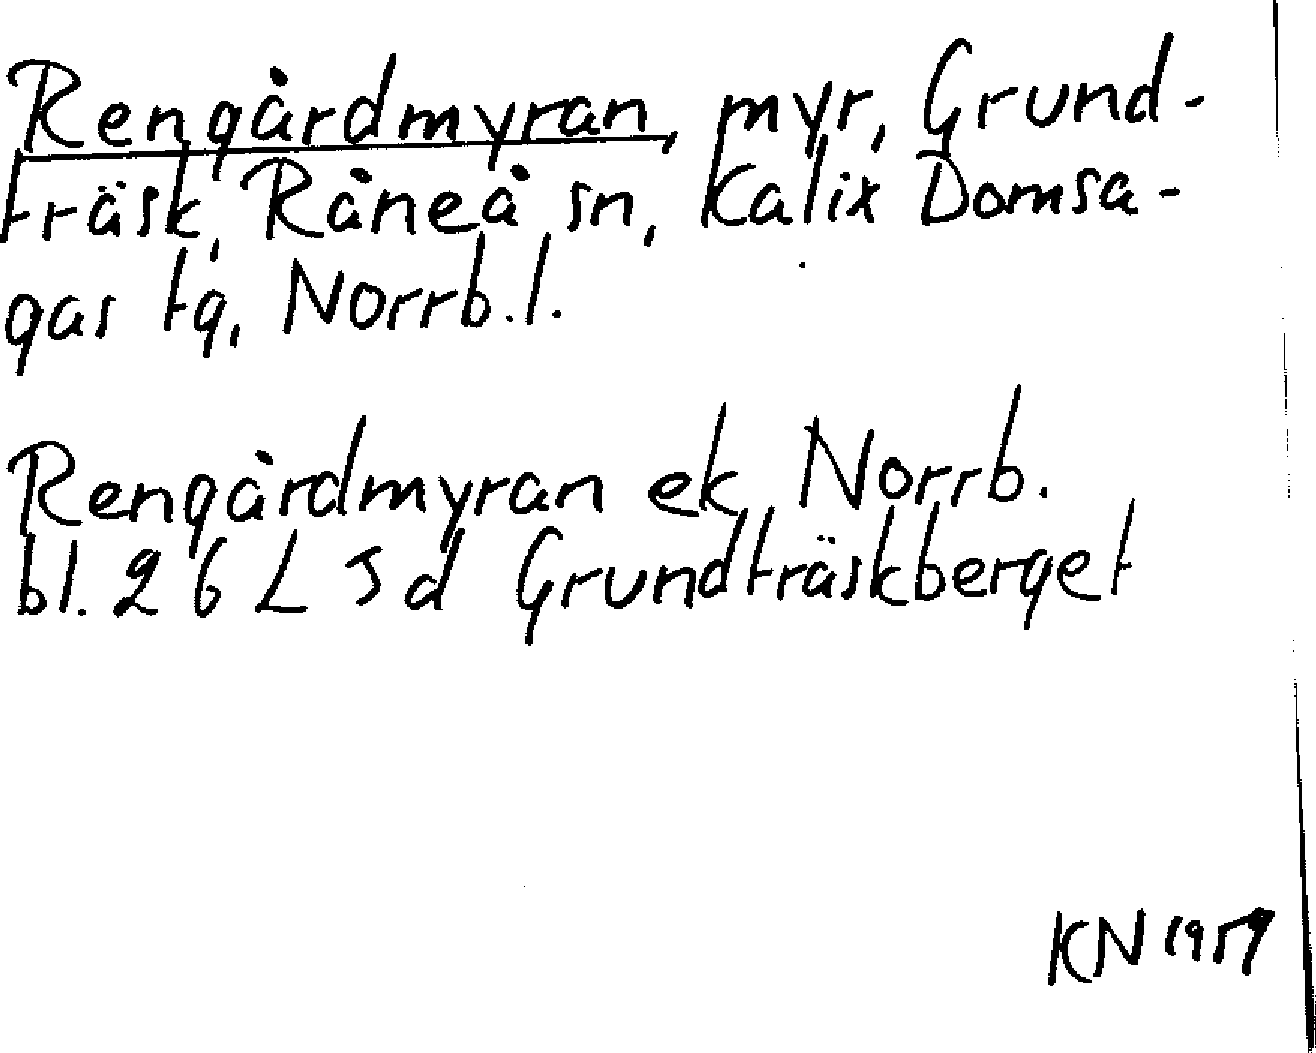 Rengårdmyran, myr, Grund-
träsk, Råneå sn, Kalix Domsa-
gas tg, Norrb. l.
Rengårdmyran ek, Norrb.
bl. 26 L 5 d Grundträskberget
KN 1959